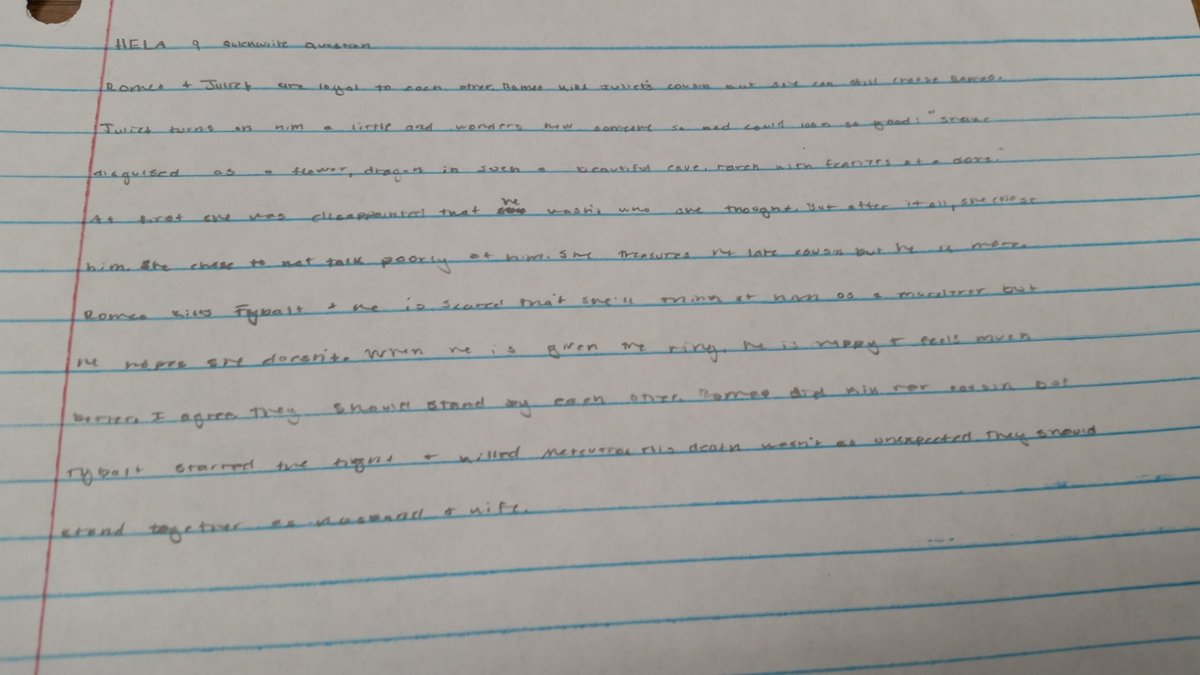 HELA 9 Quickwrite Question
Romeo + Juliet are loyal to each other. Romeo kills Juliet's cousin but she can still choose Romeo.
Juliet turns on him a little and wonders how someone so mad could look so good: "snake
disguised as a flower, dragon in such a beautiful cave, raven with feathers of a dove."
At first she was disappointed that he wasn't who she thought. But after it all, she chose
him. She chose to not talk poorly of him. She treasures her late cousin but he is more.
Romeo kills Tybalt & he is scared that she'll think of him as a murderer but
he hopes she doesn't. When he is given the ring, he is happy & feels much
better. I agree, they should stand by each other. Romeo did kill her cousin but
Tybalt started the fight & killed Mercutio. His death wasn't as unexpected. They should
stand together as husband & wife.